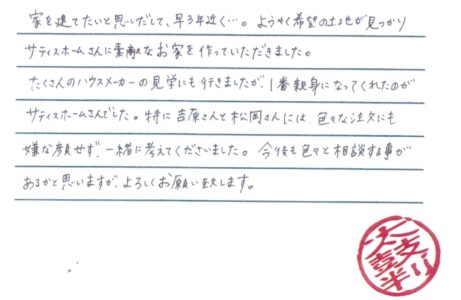 家を建てたいと思いだして、早3年近く…。ようやく希望の土地が見つかり
サティスホームさんに素敵なお家を作っていただきました。
たくさんのハウスメーカーの見学にも行きましたが、1番親身になってくれたのが
サティスホームさんでした。特に吉原さんと松岡さんには、色々な注文にも
嫌な顔せず、一緒に考えてくださいました。今後も色々と相談する事が
あるかと思いますが、よろしくお願い致します。